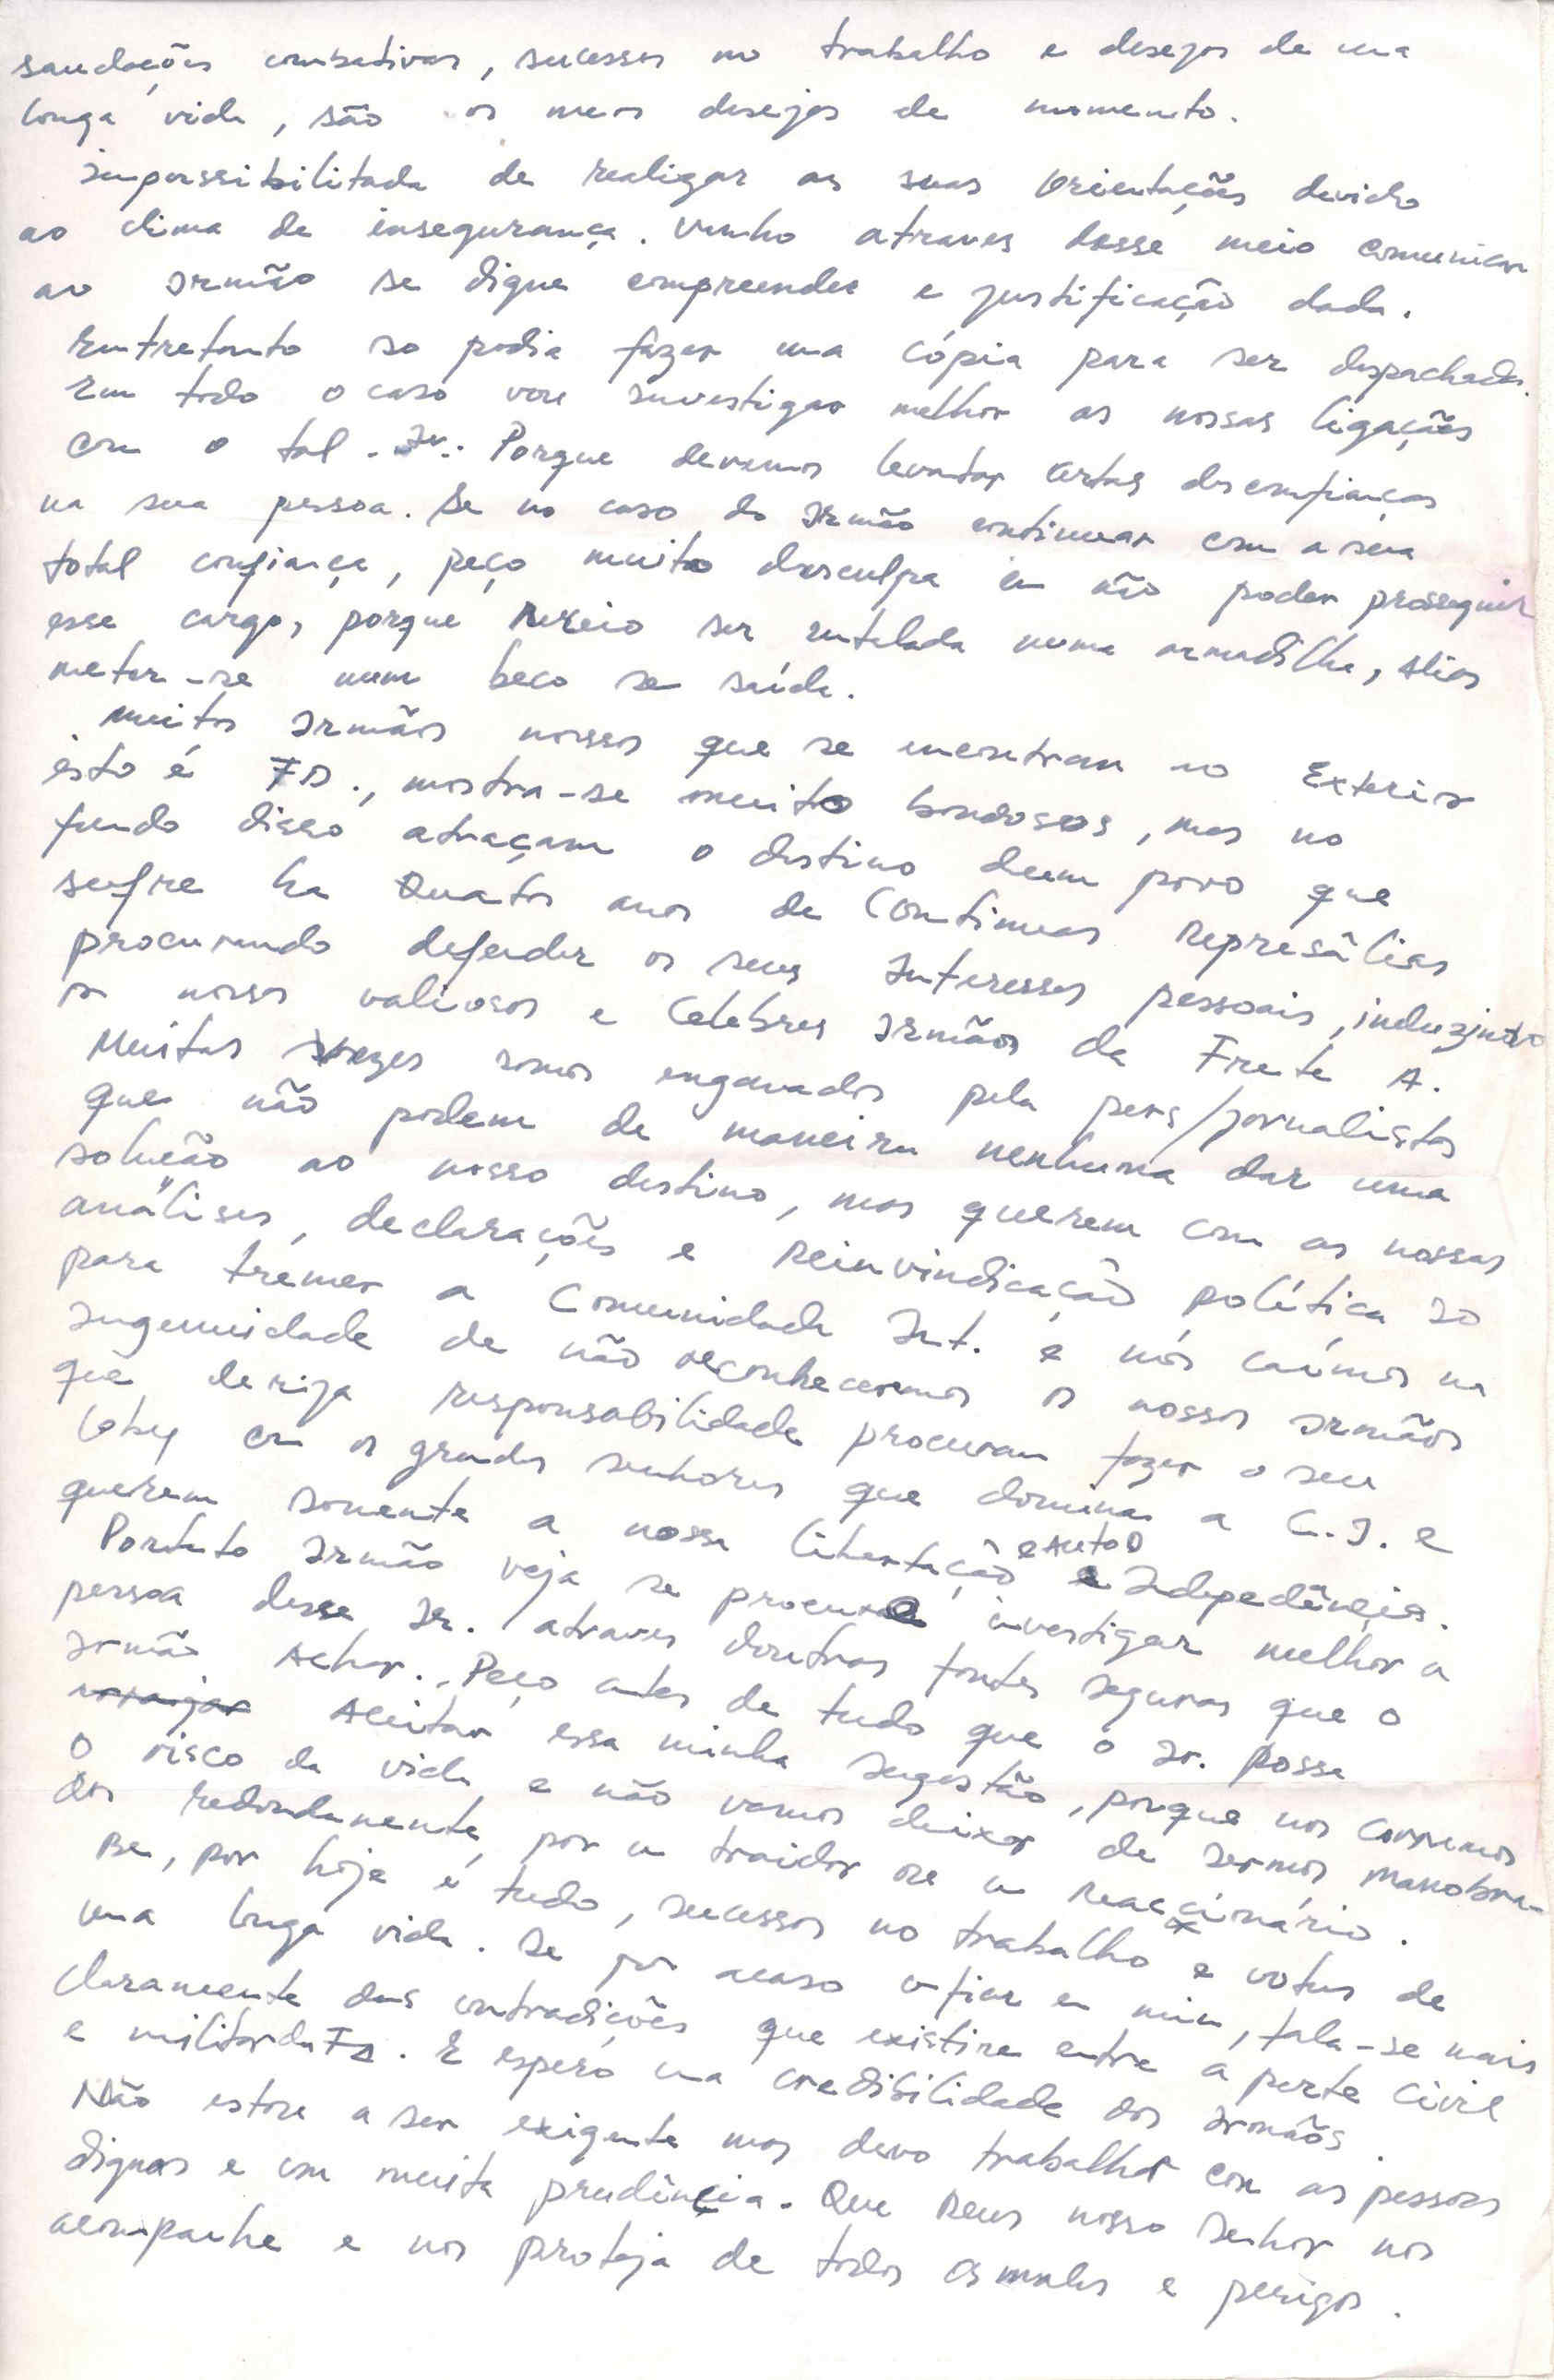 saudações combativas, sucessos no trabalho e desejos de uma
longa vida, são os meus desejos de momento.
Impossibilitada de realizar as suas Orientações devido
ao clima de insegurança. Venho atraves desse meio comunicar
ao Irmão se digne compreender e justificação dada.
Entretanto so podia fazer uma cópia para ser despachada.
Em todo o caso vou Investigar melhor as nossas ligações
com o tal . Sr.. Porque devemos levantar certas desconfianças
na sua pessoa. Se no caso do Irmão continuar com a sua
total confiança, peço muito desculpa em não poder prosseguir
esse cargo, porque Receio ser entalada numa armadilha, alias
meter-se num beco se saída.
Muitos Irmãos nossos que se encontram no Exterior
isto é FD., mostra-se muito bondosos, mas no
fundo disso atraçam o destino dum povo que
sufre ha Quatos anos de Continuas Represâlias
procurando defender os seus Interesses pessoais, induzindo
os nossos valiosos e Celebres Irmãos da Frete A.
Muitas vezes somos enganados pela pers/jornalistas
que não podem de maneira nenhuma dar uma
solução ao nosso destino, mas querem com as nossas
análises, declarações e Reinvindicação política so
para tremer a Comunidade Int. e nós caímos na
Ingenuidade de não reconhecermos os nossos Irmãos
que deriga responsabilidade procuram fazer o seu
loby com os grandes senhores que domina a C.I. e
querem somente a nossa libertação e Auto D e Indepedência.
Portanto Irmão veja se procura investigar melhor a
pessoa desse Sr. atraves doutras fontes seguras que o
Irmão Achar. Peço antes de tudo que o Sr. possa
arranjar Aceitar essa minha sugestão, porque nos corremos
o risco da vida e não vamos deixar de sermos manobra-
dos redondamente por um traidor ou um Reaccionário.
Bem, por hoje é tudo, sucessos no trabalho e votos de
uma longa vida. Se por acaso confiar em mim, fala-se mais
claramente das contradições que existire entre a parte Civil
e militar da FD. E espero uma credibilidade dos Irmãos.
Não estou a ser exigente mas devo trabalhar com as pessoas
dignas e com muita prudência. Que Deus nosso Senhor nos
acompanhe e nos proteja de todos os males e perigos.